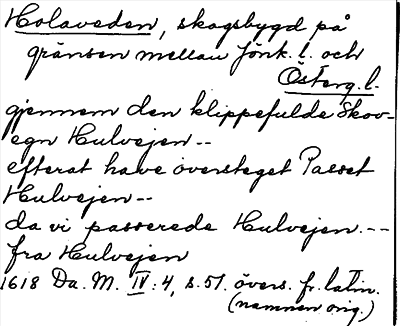 Holaveden, skogsbygd på
gränsen mellan Jönk. l. och
Österg. l.
gjennem den klippefulde Skov-
egn Hulvejen --
efterat have oversteget Passet
Hulvejen --
da vi passerede Hulvejen. ---
fra Hulvejen
1618 Da. M. IV: 4, s. 51. övers. fr. latin.
(namnen orig.)